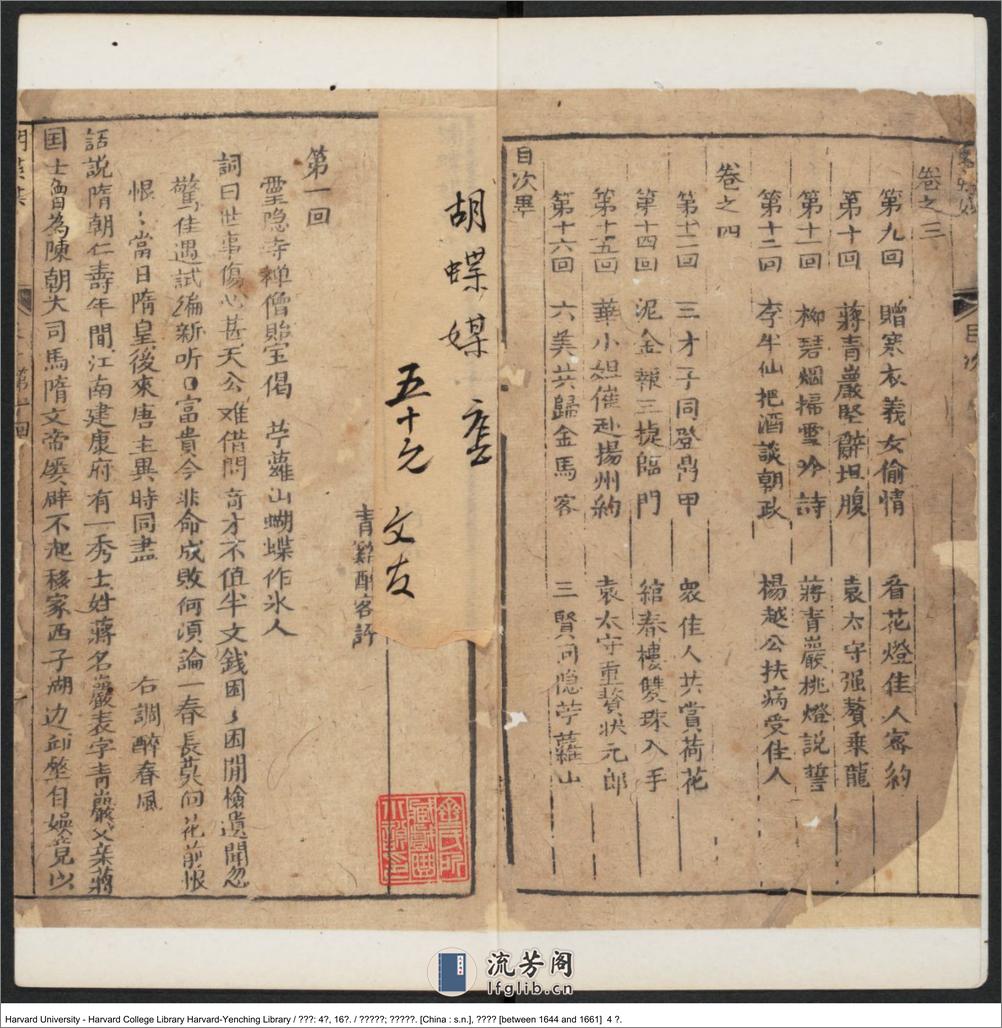 卷之三
第九回 贈寒衣義女偷情 看花燈佳人密約
第十回 蔣青巖堅辭坦腹 袁太守强贅乗龍
第十一回 柳碧烟掃雪吟詩 蔣青巖桃燈説誓
第十二回 李半仙把酒談朝政 楊越公扶病受佳人
卷之四
第十三回 三才子同登鼎甲 衆佳人共賞荷花
第十四回 泥金報三捷臨門 綰春樓雙珠入手
第十五回 華小姐催赴揚州約 袁太守重贅狀元郎
第十六回 六美共歸金馬客 三賢同隐苧蘿山
目次畢
目次
胡蝶媒
五十元 文友
青谿醉客評
第一回
靈隐寺禅僧貽宝偈 苧蘿山蝴蝶作氷人
詞曰世事傷心甚天公难借問奇才不值半文錢困〻困閒檢遺聞忽
驚佳遇試编新听口富貴今非命成敗何湏論一春長莫问花前恨
恨〻當日隋皇後來唐主異時同盡 右調醉春風
話説隋朝仁壽年間江南建康府有一秀士姓蔣名巖表字青巖父亲蔣
国士曾為陳朝大司馬隋文帝屡辟不起移家西子湖边邱壑自娛見以
流芳阁
lfglib.cn
Harvard University - Harvard College Library Harvard-Yenching Library / ???: 4?, 16?. / ?????; ?????. [China : s.n.], ???? [between 1644 and 1661] 4 ?.